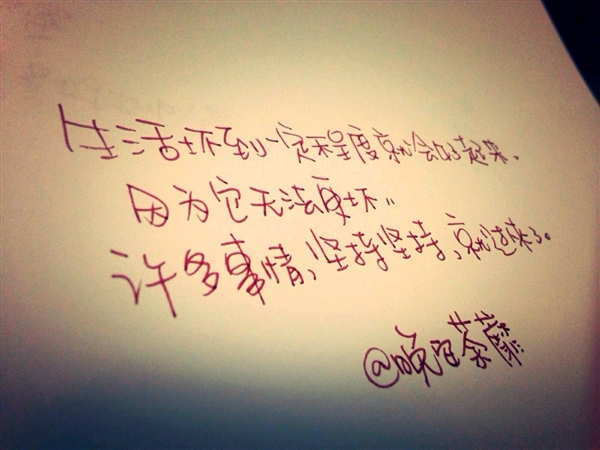 生活坏到一定程度就会好起来、
因为它无法更坏..
许多事情、坚持坚持，就过来了。
@晚安荼